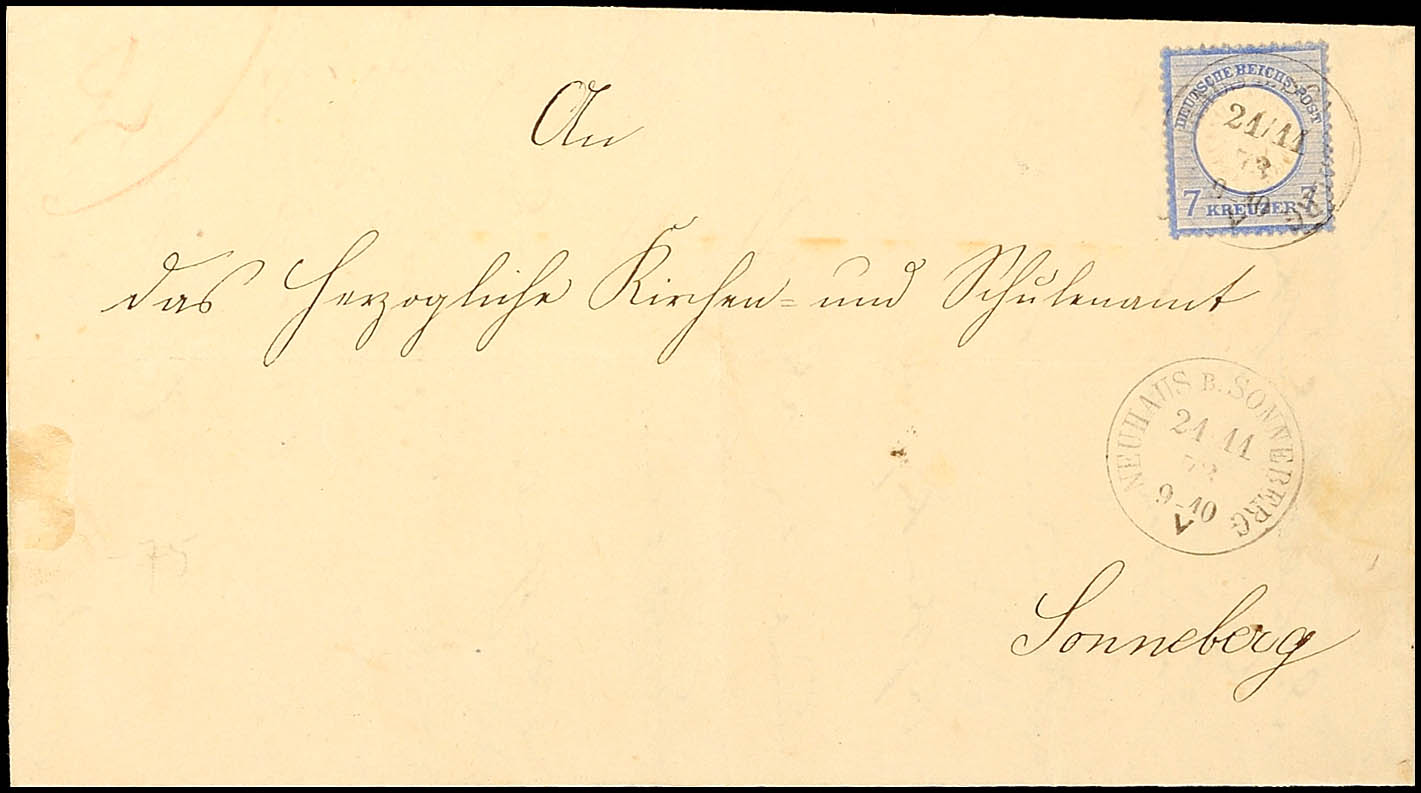 An
DEUTSCHE REICHS-POST
21/11
9 10
V
7 KREUZER 7
das Herzogliche Kirchen- und Schulenamt
NEUHAUS B. SONNEBERG
21 11
72
9-10
V
Sonneberg
-75